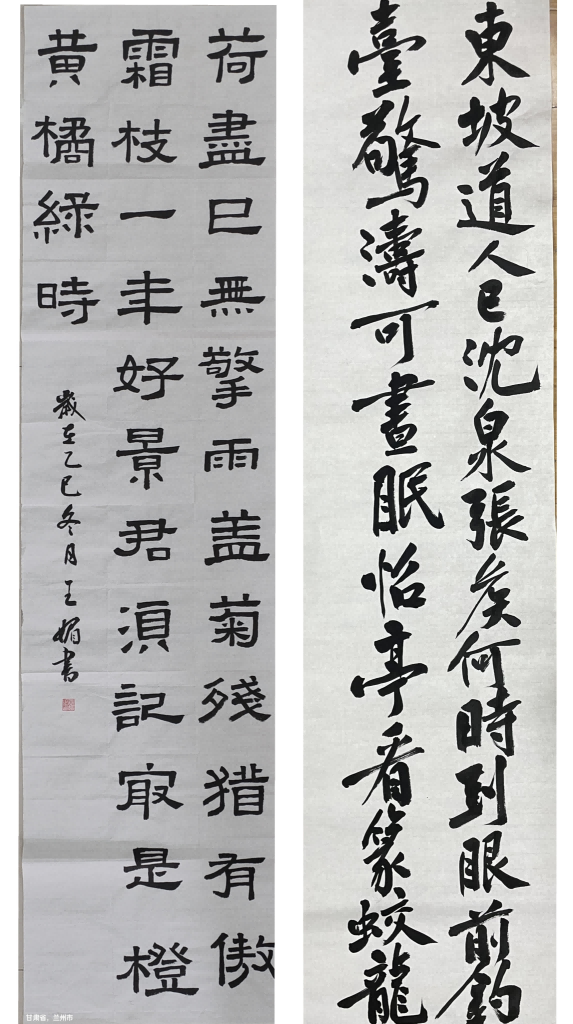 東坡道人已沈泉張矦何時到眼前釣
臺驚濤可晝眠怡亭看篆蛟龍
荷盡已無擎雨盖菊殘猶有傲
霜枝一年好景君須記㝡是橙
黄橘綠時
歲在乙巳冬月王媚書
甘肃省，兰州市